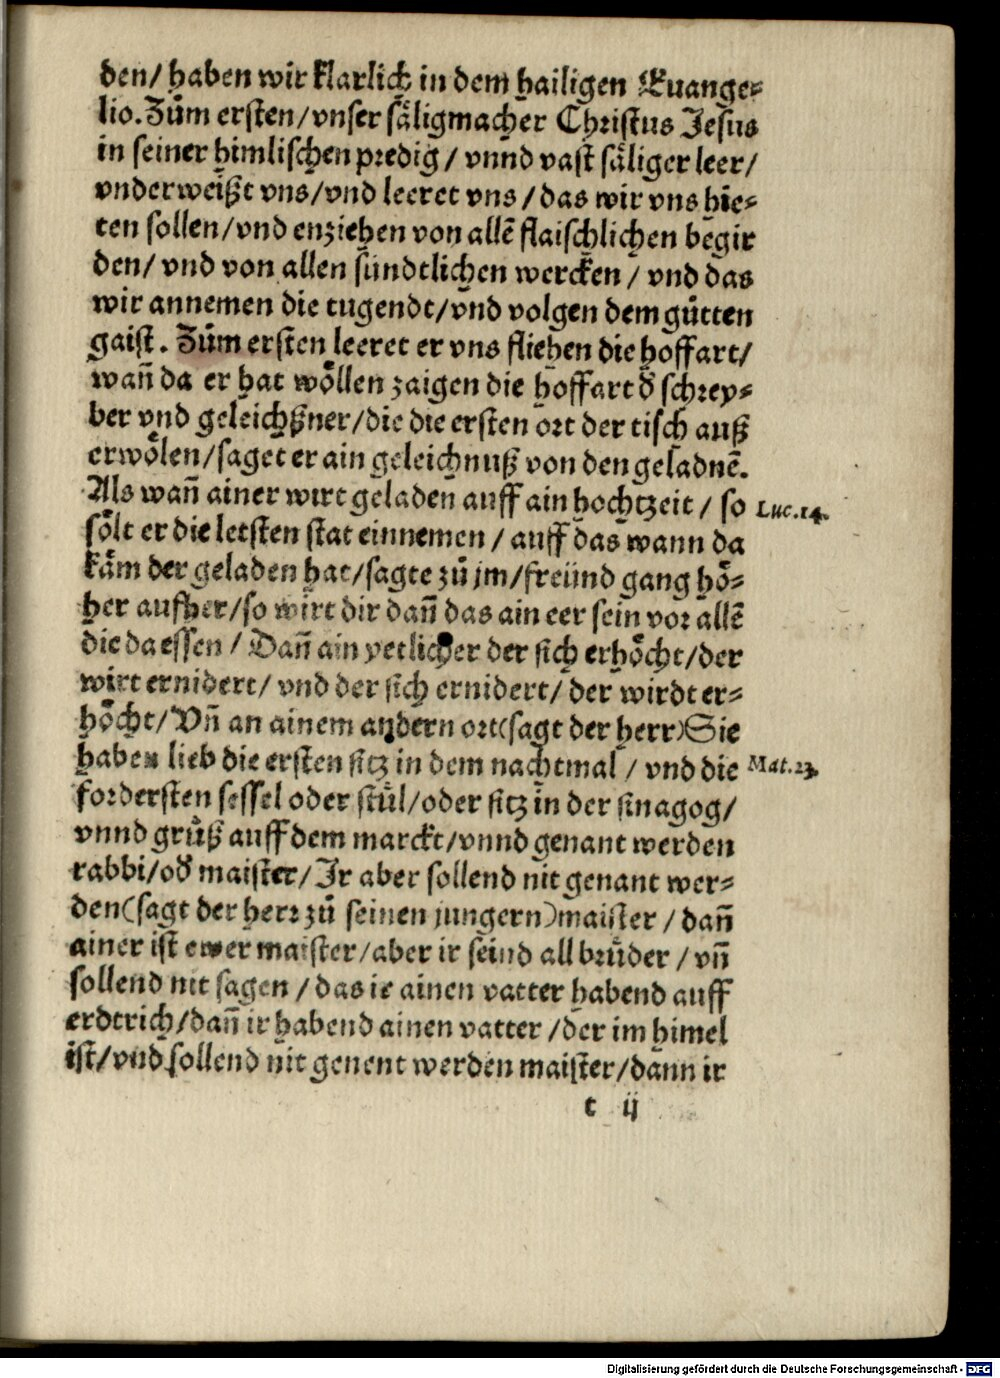 den/ haben wir klarlich in dem hailigen Euange⸗
lio. Zům ersten/vnser säligmacher Christus Jesus
in seiner himlischen predig / vnnd vast säliger leer/
vnderweißt vns/vnd leeret vns / das wir vns hie⸗
ten sollen/vnd enziehen von allē flaischlichen begir
den/ vnd von allen sündtlichen wercken / vnd das
wir annemen die tugendt/vnd volgen dem gůtten
gaist. Zům ersten leeret er vns fliehen die hoffart/
wañ da er hat wöllen zaigen die hoffart d' schrey⸗
ber vnd geleichßner/die die ersten ort der tisch auß
erwölen/saget er ain geleichnuß von den geladnē.
Als wañ ainer wirt geladen auff ain hochtzeit / so Luc.14.
sölt er die letsten stat einnemen / auff das wann da
käm der geladen hat/sagte zů jm/freünd gang hö⸗
her aufher/so wirt dir dañ das ain eer sein vor allē
die da essen / Dañ ain yetlicher der sich erhöcht/der
wirt ernidert/ vnd der sich ernidert/ der wirdt er⸗
höcht/Vñ an ainem andern ort(sagt der herr)Sie
haben lieb die ersten sitz in dem nachtmal / vnd die Mat.23.
fordersten sessel oder stůl/oder sitz in der sinagog/
vnnd grůß auff dem marckt/vnnd genant werden
rabbi/od' maister/Ir aber sollend nit genant wer⸗
den(sagt der herr zů seinen jungern)maister / dañ
ainer ist ewer maister/aber ir seind all brůder / vñ
sollend nit sagen / das ir ainen vatter habend auff
erdtrich/dañ ir habend ainen vatter /der im himel
ist/vnd sollend nit genent werden maister/dann ir
t ij
Digitalisierung gefördert durch die Deutsche Forschungsgemeinschaft - DFG